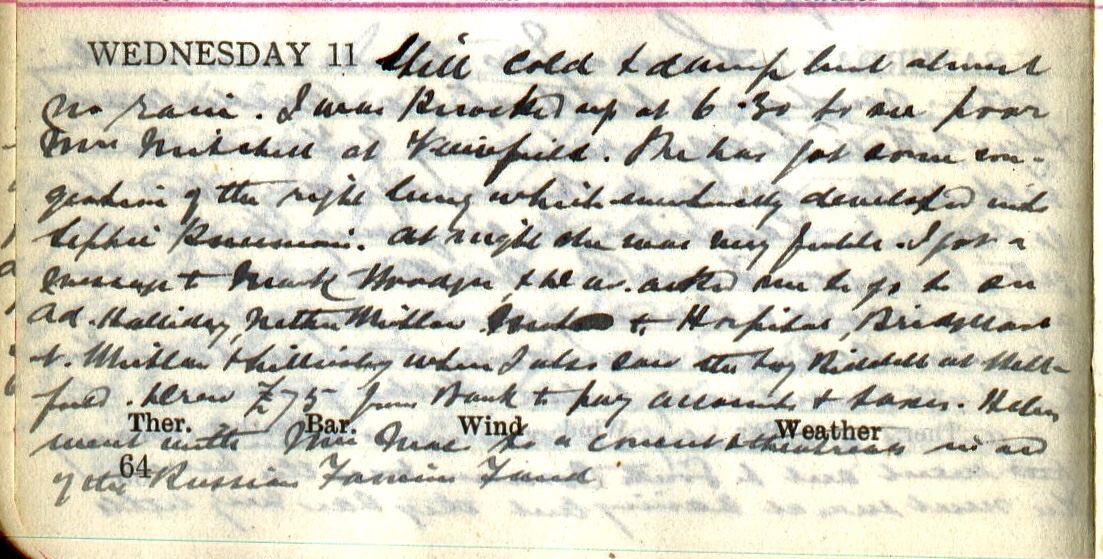 WEDNESDAY 11 Still cold & damp but almost
no rain. I was knocked up at 6.30 to see poor
Mrs Mitchell at Fairfield. She has got some con-
gestion of the right lung which eventually developed into
Septic Pneumonia. At night she was very feeble. I got a
message to & he asked me to go to see
Ad. Halliday, Nether Mistlaw & Hospital, Bridgland
St. when I also saw the boy Riddell at
field. Drew £75 from Bank to pay accounts & taxes. Helen
Ther. Bar. Wind Weather
went with Mrs to a concert & theatricals in aid
64
of the Russian Famine Fund